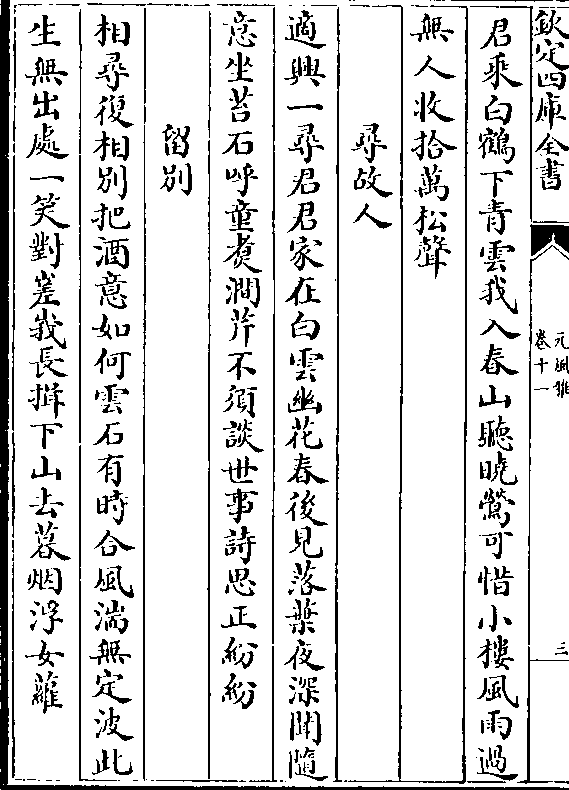 欽定四庫全書
元風雅
卷十一
三
君乘白鶴下青雲我入春山聽曉鶯可惜小樓風雨過
無人收拾萬松聲
尋故人
適興一尋君君家在白雲幽花春後見落葉夜深聞隨
意坐苔石呼童煑澗芹不須談世事詩思正紛紛
留别
相尋復相别把酒意如何雲石有時合風湍無定波此
生無出處一笑對嵳峩長揖下山去暮烟浮女蘿